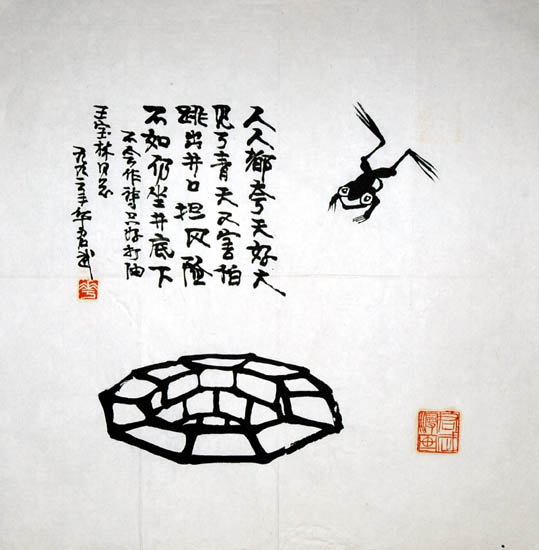 人人都夸天好大
见了青天又害怕
跳出井口担风险
不如仍坐井底下
不会作诗只好打油
王宝林同志
年华君武
华
君武漫画